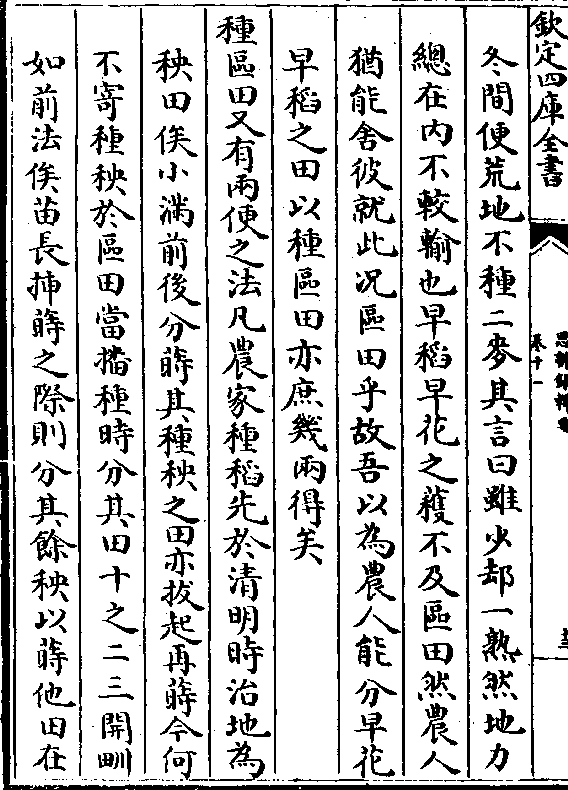 欽定四庫全書
思辨録輯要
卷十一
冬間便荒地不種二麥其言曰雖少却一熟然地力
總在内不較輸也早稻早花之穫不及區田然農人
猶能舍彼就此况區田乎故吾以為農人能分早花
早稻之田以種區田亦庶幾兩得矣
種區田又有兩便之法凡農家種稻先於清明時治地為
秧田俟小滿前後分蒔其種秧之田亦拔起再蒔今何
不寄種秧於區田當播種時分其田十之二三開甽
如前法俟苗長揷蒔之際則分其餘秧以蒔他田在